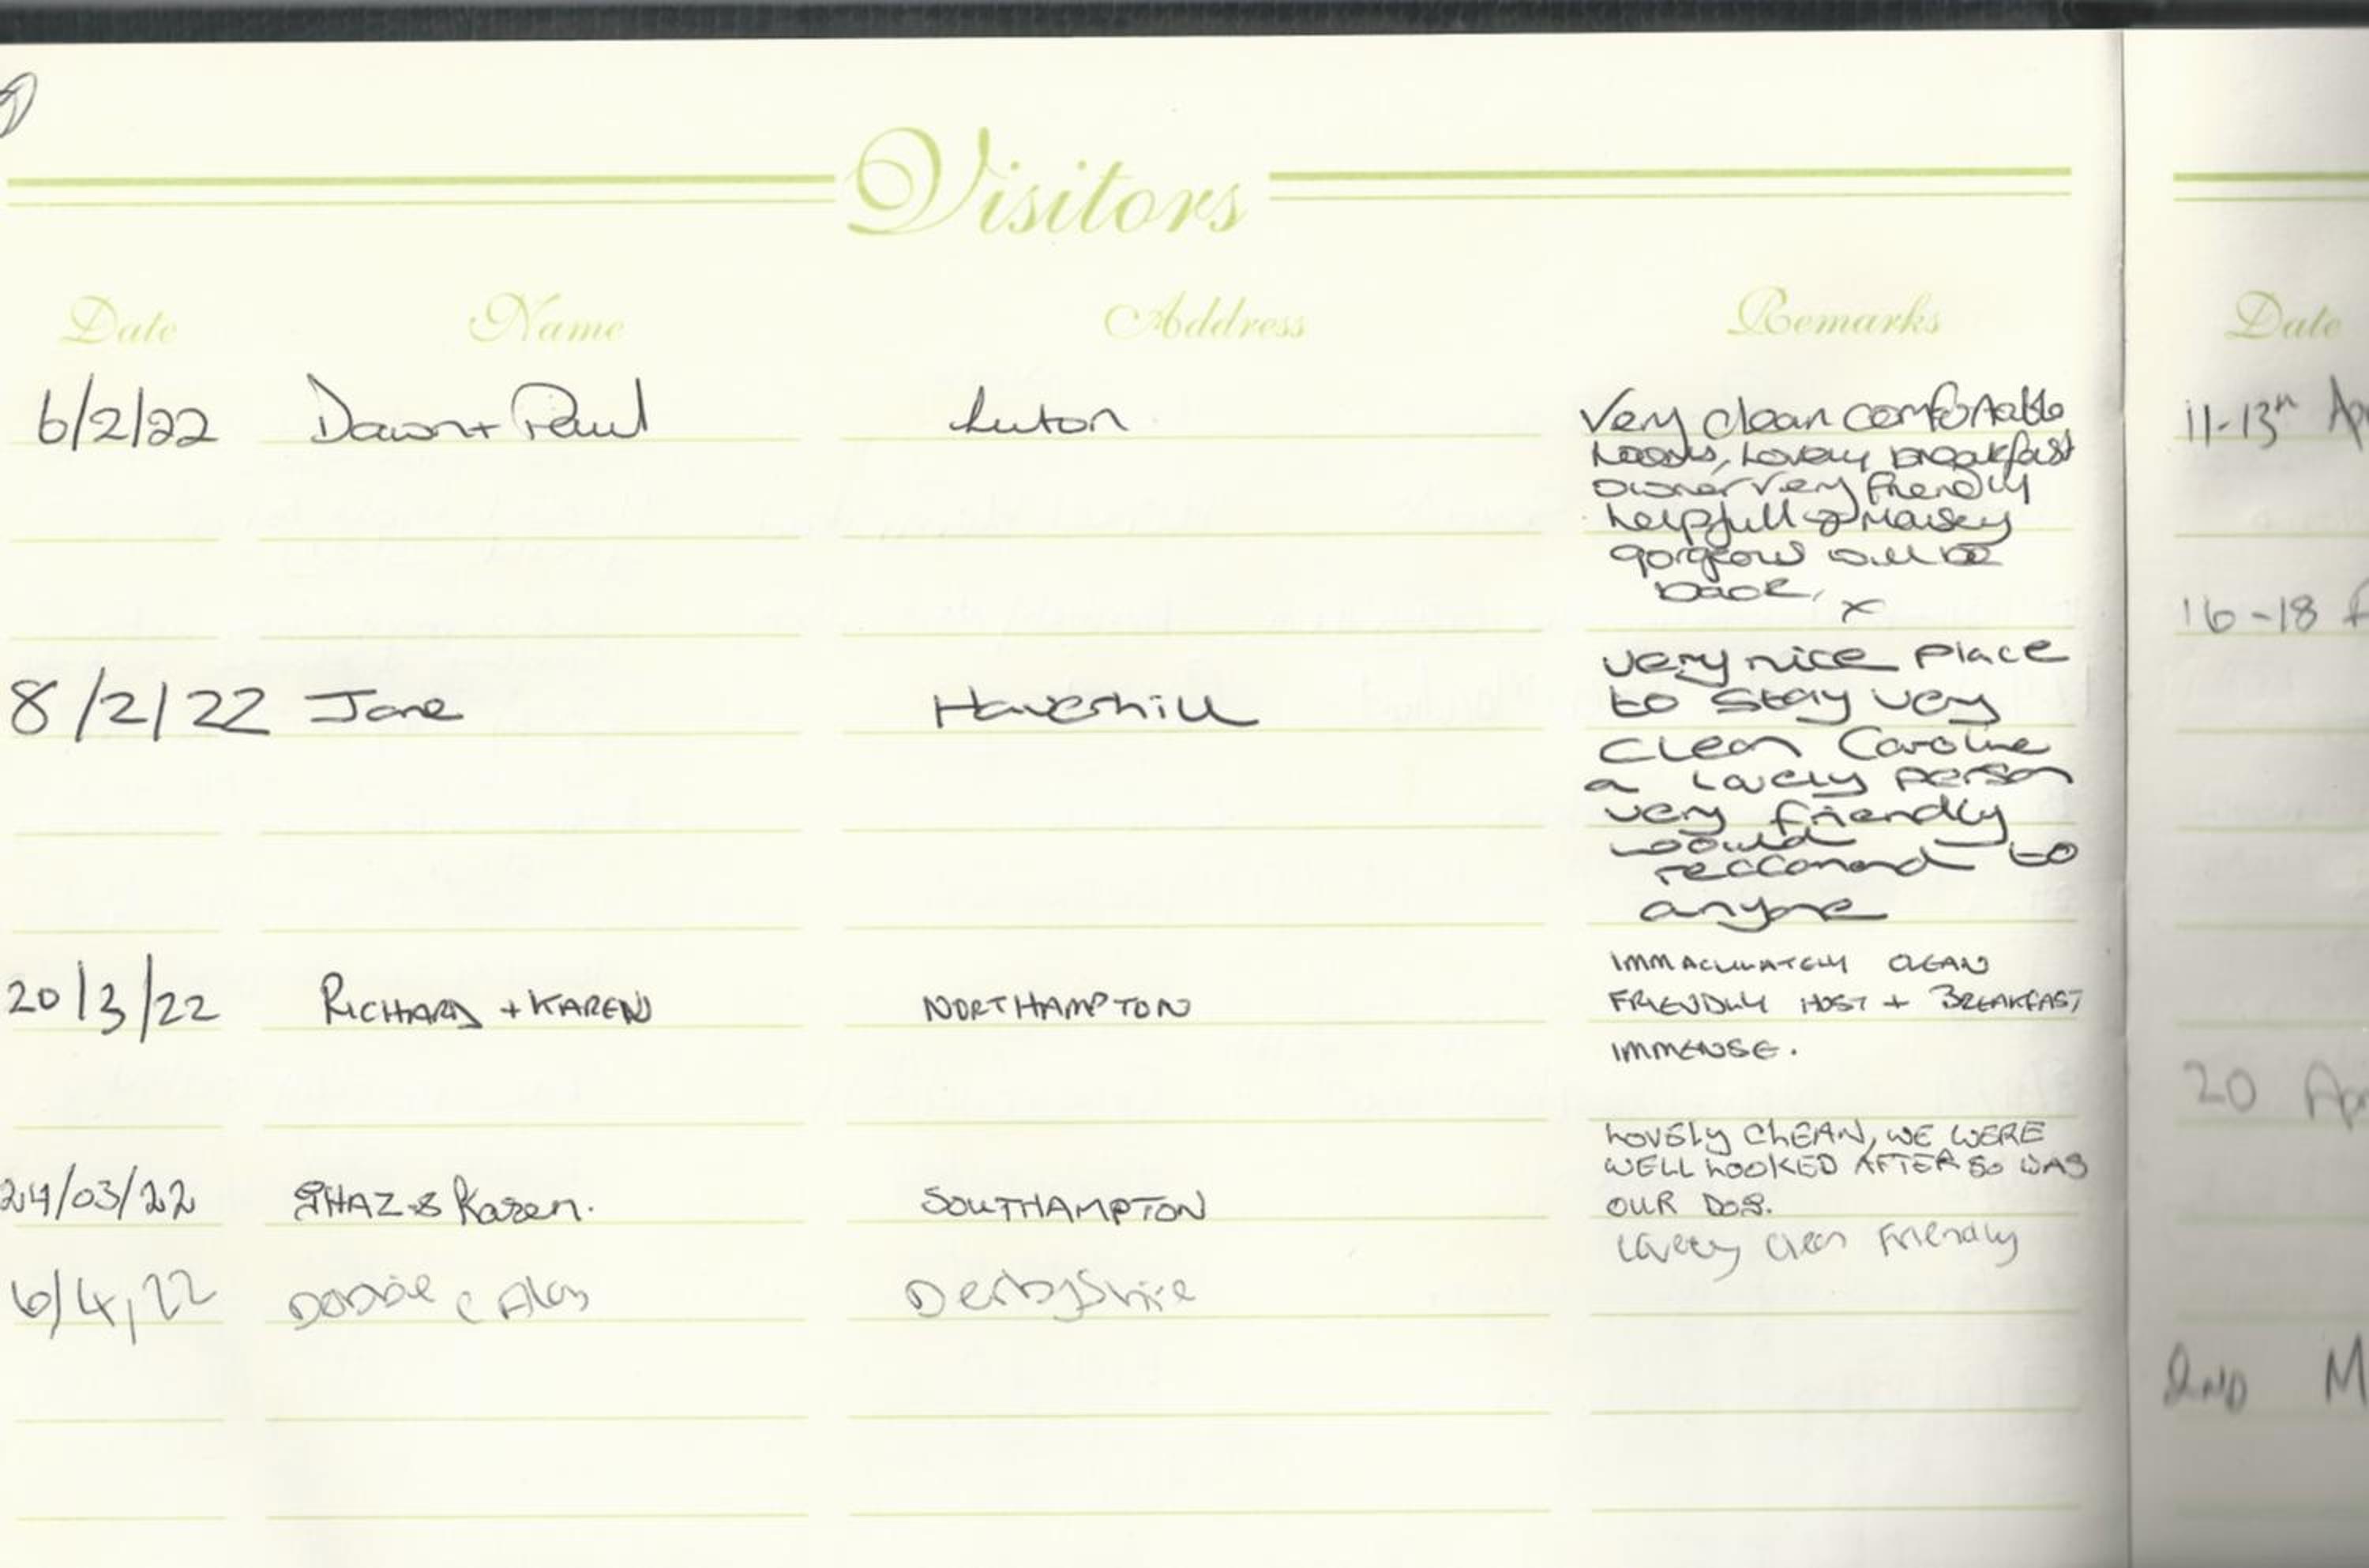 Visitors
Date Name Address Remarks Date
6/2/22 Dawn + Paul Luton Very clean comfortable
rooms, Lovely breakfast
owner very friendly
helpfull & Maisey
gorgeous will be
back, x
11-13th Ap
16-18
8/2/22 Jane Haverhill very nice place
to stay very
clean Caroline
a lovely person
very friendly
would
reccomend to
anyone
20/3/22 RICHARD + KAREN NORTHAMPTON IMMACULATELY CLEAN
FRIENDLY HOST + BREAKFAST
IMMENSE.
20 Apr
24/03/22 SHAZ & Karen. SOUTHAMPTON LOVELY CLEAN, WE WERE
WELL LOOKED AFTER SO WAS
OUR DOG.
6/4,22 Debbie & Alan Derbyshire Lovely clean friendly
2ND M